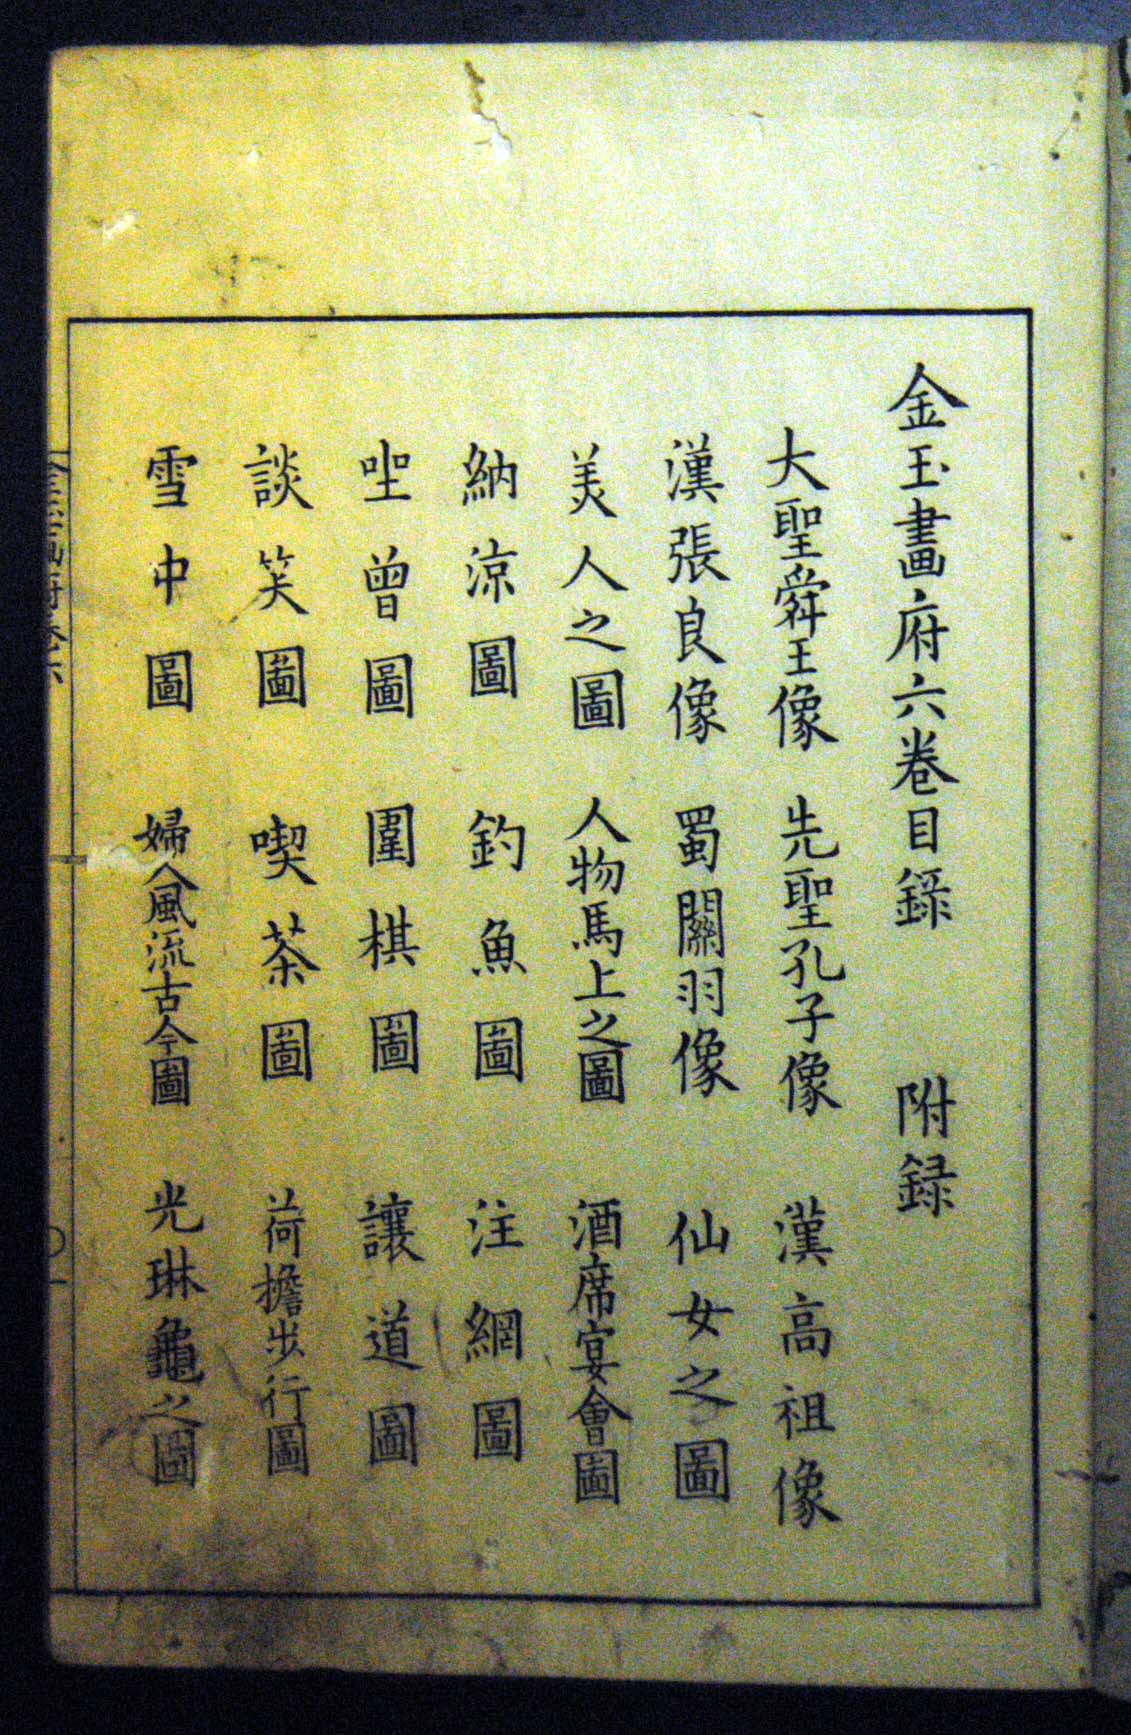 金玉畫府六卷目録 附録
大聖舜王像 先聖孔子像 漢高祖像
漢張良像 蜀關羽像 仙女之圖
美人之圖 人物馬上之圖 酒席宴會圖
納涼圖 釣魚圖 注網圖
坐曾圖 圍棋圖 讓道圖
談笑圖 喫茶圖 荷擔步行圖
雪中圖 婦人風流古今圖 光琳龜之圖